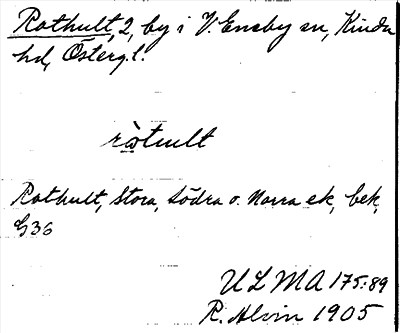 Rothult, 2, by i V. Eneby sn, Kinda
hd, Östergl.
Rothult, Stora, Södra o. Norra ek, bek,
G36
ULMA 175:89
R. Alvin 1905